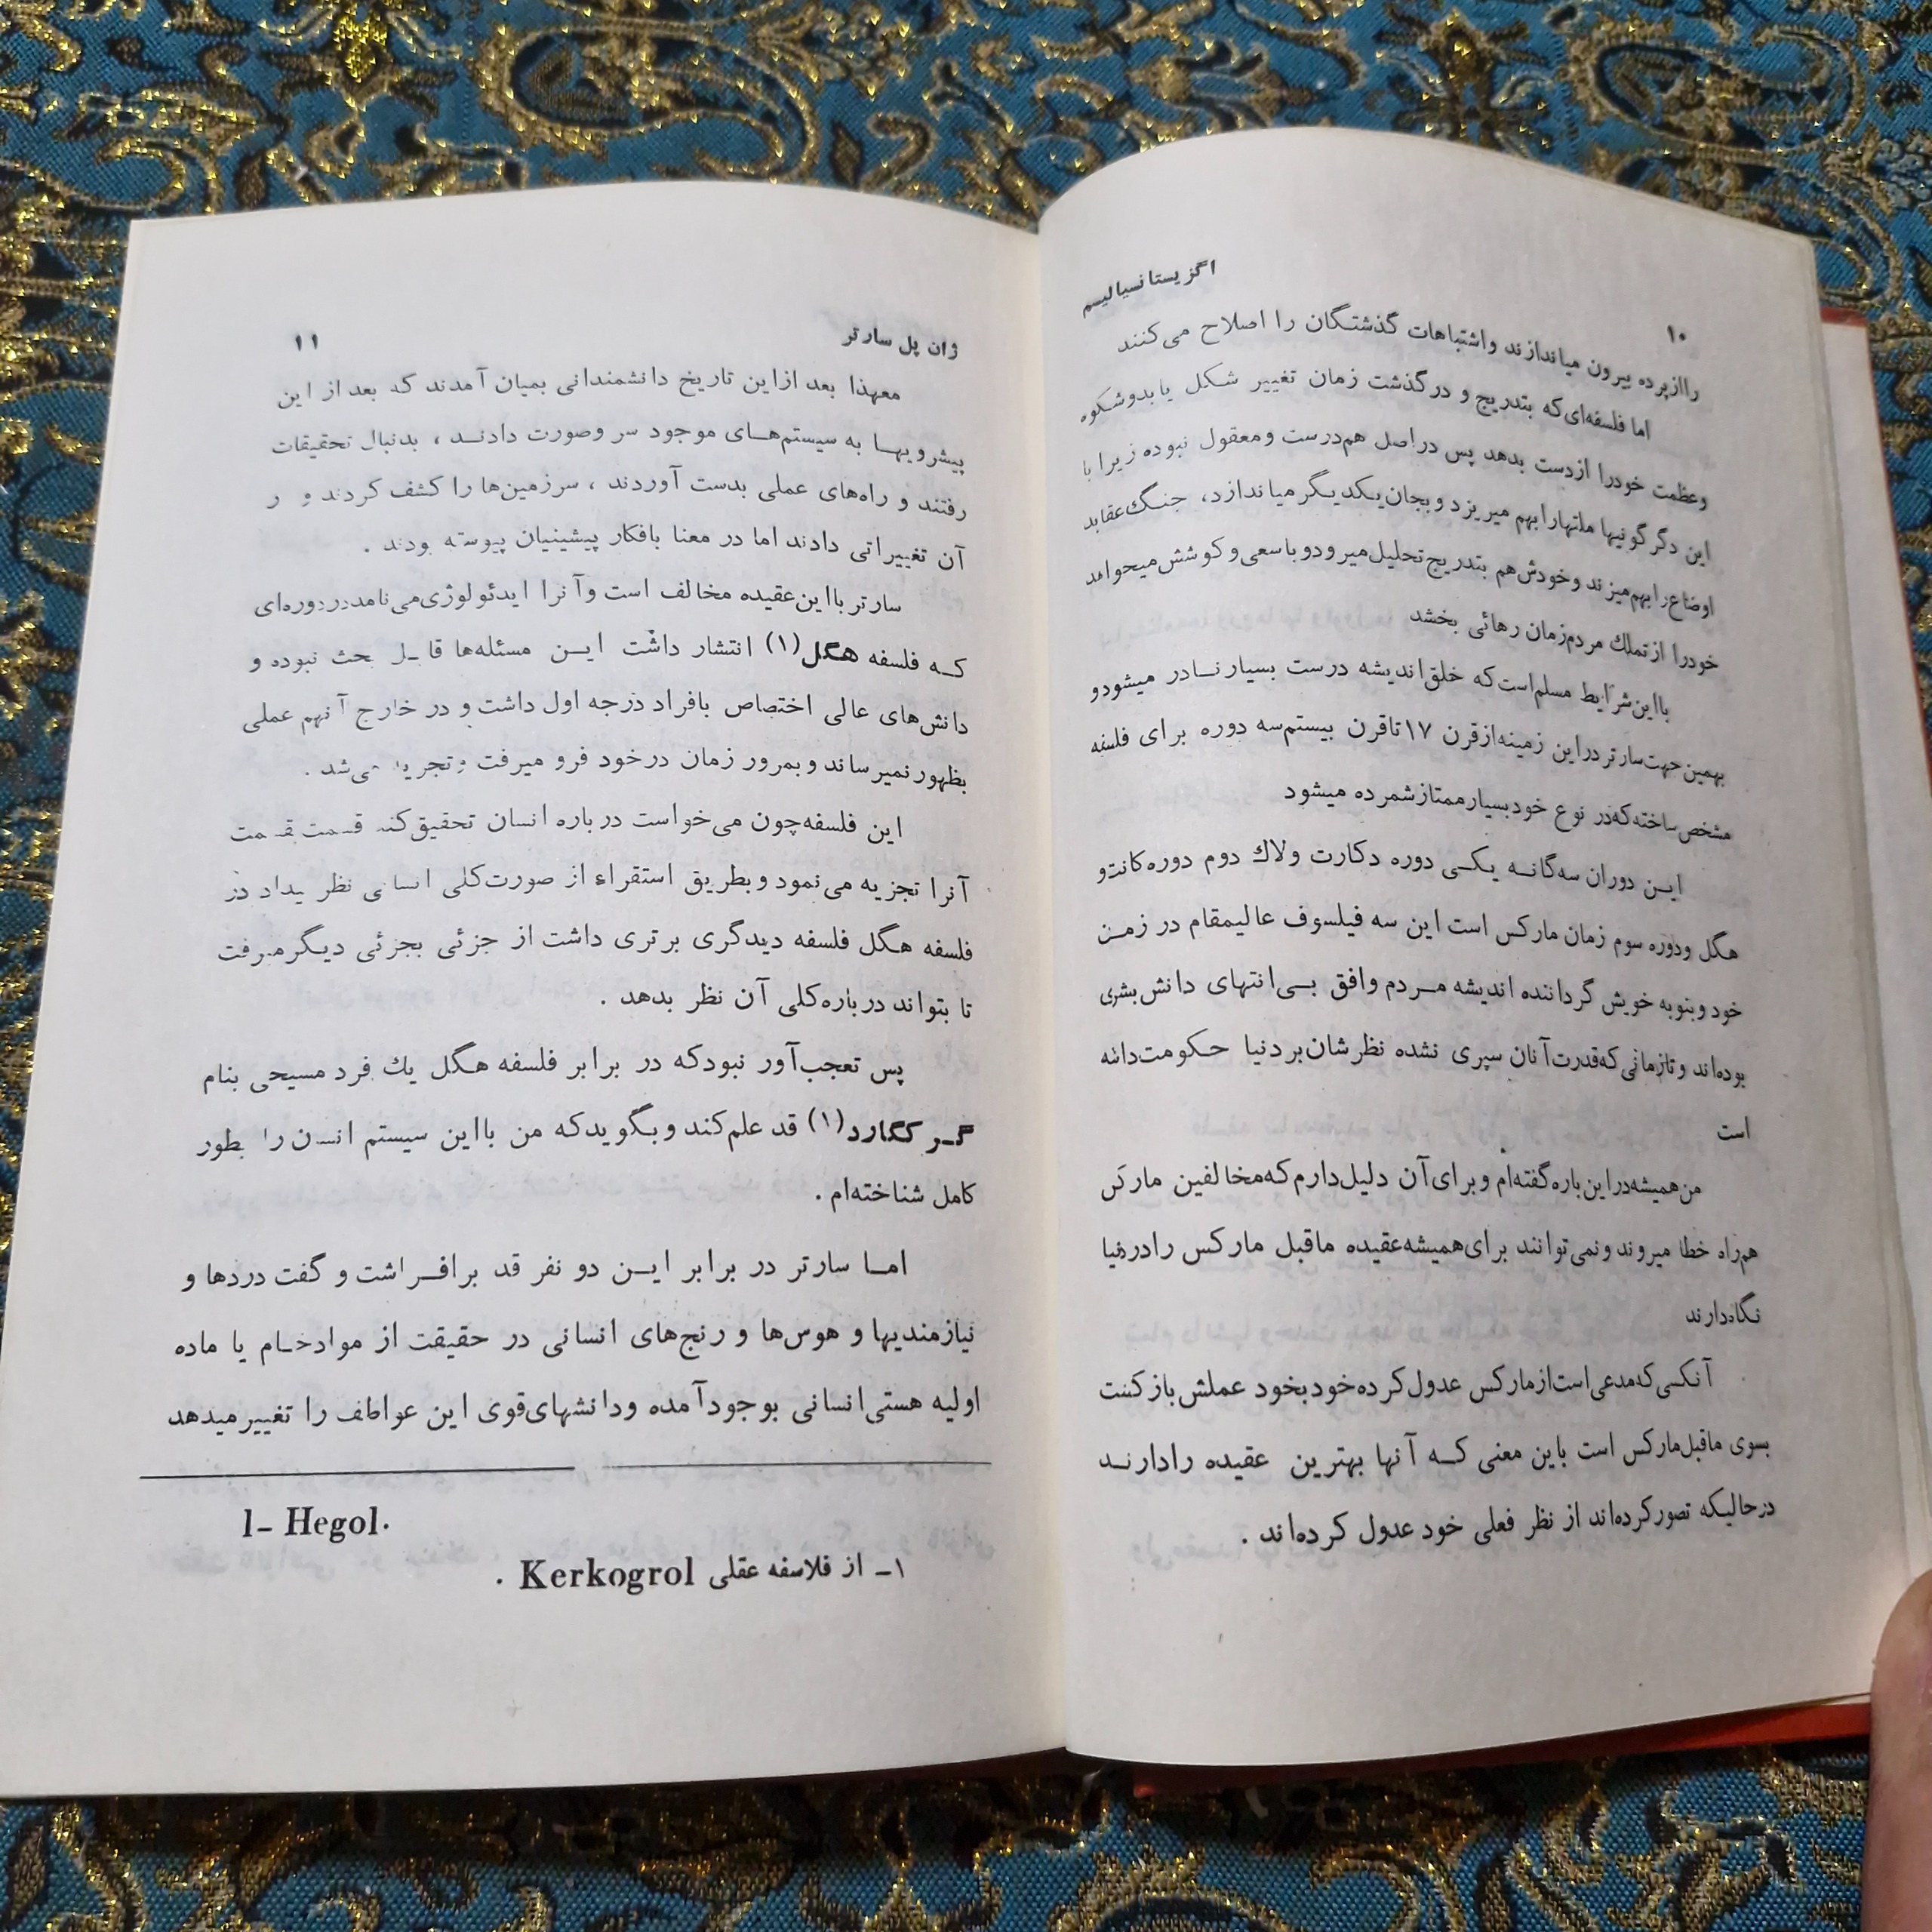 ۱۰
اگزیستانسیالیسم
رااز پرده بیرون میاندازند واشتباهات گذشتگان را اصلاح می‌کنند
اما فلسفه‌ای‌که بتدریج و درگذشت زمان تغییر شکل یابدوشکوه
وعظمت خودرا ازدست بدهد پس دراصل هم‌درست ومعقول نبوده زیرا با
این دگرگونیها ملتهارا بهم میریزد وبجان‌یکدیگر میاندازد، جنگ‌عقاید
اوضاع‌رابهم‌میزند وخودش‌هم بتدریج‌تحلیل‌میرودو باسعی‌و کوشش‌میخواهد
خودرا ازتملك مردم‌زمان رهائی بخشد
بااین‌شرایط مسلم‌است‌که خلق‌اندیشه درست بسیارنـادر میشودو
بهمین‌جهت‌سارتردراین زمینه‌ازقرن ۱۷تاقرن بیستم‌سه دوره برای فلسفه
مشخص‌ساخته‌که‌در نوع خودبسیارممتازشمرده میشود
ایـن دوران سه‌گانـه یکـی دوره دکارت ولاك دوم دوره‌کانت‌و
هگل ودوره سوم زمان مارکس است این سه فیلسوف عالیمقام در زمـن
خود وبنوبه خویش گرداننده اندیشه مـردم وافق بـی‌انتهای دانش‌بشری
بوده‌اند وتازمانی‌که‌قدرت‌آنان سپری نشده نظرشان‌بر دنیا حـکومت‌داشه
است
من‌همیشه‌دراین‌باره‌گفته‌ام وبرای‌آن دلیل‌دارم‌که‌مخالفین مارکس
هم‌راه خطا میروند ونمی‌توانند برای‌همیشه‌عقیده ماقبل مارکس رادردنیا
نگاه‌دارند
آنکسی‌که‌مدعی‌است‌ازمارکس عدول‌کرده‌خودبخود عملش‌بازگشت
بسوی ماقبل‌مارکس است باین معنی کـه آنها بهترین عقیده رادارنـد
درحالیکه تصورکرده‌اند از نظر فعلی خود عدول کرده‌اند .
ژان پل سارتر
۱۱
معهذا بعد ازاین تاریخ دانشمندانی بمیان آمدند که بعد از این
پیشرویهـا به سیستم‌هـای موجود سر وصورت دادنـد ، بدنبال تحقیقات
رفتند و راه‌های عملی بدست آوردند ، سرزمین‌ها را کشف کردند و ر
آن تغییراتی دادند اما در معنا بافکار پیشینیان پیوسته بودند .
سارتر بااین‌عقیده مخالف است وآنرا ایدئولوژی‌می‌نامددردوره‌ای
کـه فلسفه هگل (۱) انتشار داشت ایـن مسئله‌ها قابل بحث نبوده و
دانش‌های عالی اختصاص بافراد درجه اول داشت و در خارج آنهم عملی
بظهورنمیرساند وبمرور زمان درخود فرو میرفت وتجزیه می‌شد .
این فلسفه‌چون می‌خواست درباره انسان تحقیق‌کند قسمت‌قسمت
آنرا تجزیه می‌نمود وبطریق استقراء از صورت‌کلی انسانی نظر میداد در
فلسفه هگل فلسفه دیدگری برتری داشت از جزئی بجزئی دیگرمیرفت
تا بتواند درباره‌کلی آن نظر بدهد .
پس تعجب‌آور نبودکه در برابر فلسفه هگل یك فرد مسیحی بنام
گـر کگارد (۱) قد علم‌کند وبگویدکه من بااین سیستم انسان را بطور
کامل شناخته‌ام .
امـا سارتر در برابر ایـن دو نفر قد برافـراشت و گفت دردها و
نیازمندیها و هوس‌ها و رنج‌های انسانی در حقیقت از موادخـام یا ماده
اولیه هستی‌انسانی بوجودآمده ودانشهای‌قوی این عواطف را تغییرمیدهد
1- Hegol.
۱ـ از فلاسفه عقلی Kerkogrol .